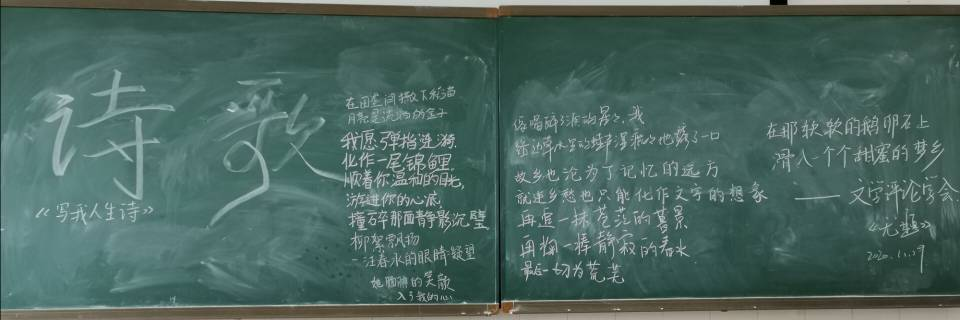 诗歌
《写我人生诗》
在田垄间撒下稻苗
月亮是洗的的金子
我愿弹指进湖
化作一尾锦鲤
顺着你温柔的目光
游进你的心底
撞碎那面静影沉璧
柳絮飘扬
一汪春水的眼睛凝望
她腼腆的笑靥
入了我的心
故乡也沦为了记忆的远方
就连乡愁也只能化作文字的想象
再追一抹苍茫的暮景
再掬一捧静寂的春水
最后一切为荒芜
在那软软的鹅卵石上
滑入一个个甜蜜的梦乡
——文学评论学会
《无题》
2020.11.19